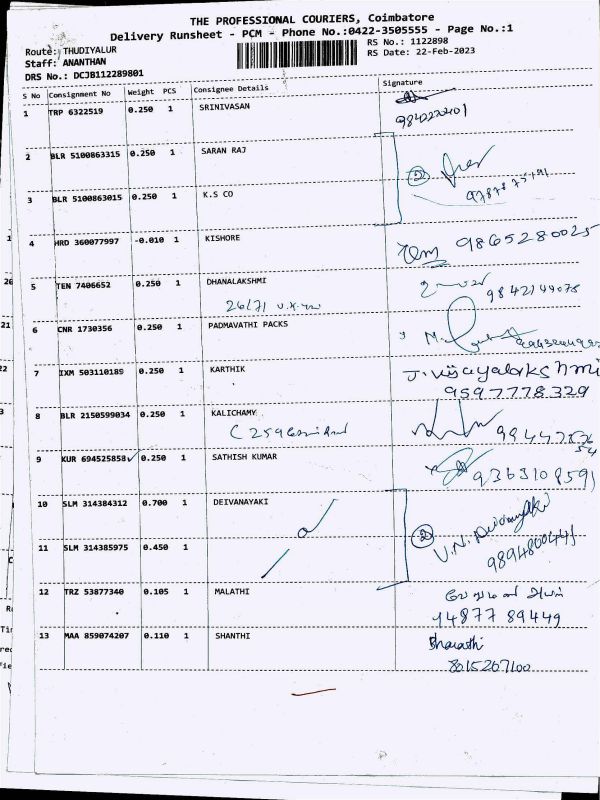 THE PROFESSIONAL COURIERS, Coimbatore
Delivery Runsheet - PCM - Phone No.:0422-3505555 - Page No.:1
Route: THUDIYALUR
RS No.: 1122898
Staff: ANANTHAN
RS Date: 22-Feb-2023
DRS No.: DCJB112289801
S No Consignment No Weight PCS Consignee Details Signature
1 TRP 6322519 0.250 1 SRINIVASAN
2 BLR 5100863315 0.250 1 SARAN RAJ
②
3 BLR 5100863015 0.250 1 K.S CO
4 HRD 360077997 -0.010 1 KISHORE 9865280025
5 TEN 7406652 0.250 1 DHANALAKSHMI
26/71
6 CNR 1730356 0.250 1 PADMAVATHI PACKS
7 IXM 503110189 0.250 1 KARTHIK J. Vijayalakshmi
9597778329
8 BLR 2150599034 0.250 1 KALICHAMY
C 259
9 KUR 694525858 0.250 1 SATHISH KUMAR
9363108591
10 SLM 314384312 0.700 1 DEIVANAYAKI
② V.N. Deivanayaki
11 SLM 314385975 0.450 1 9894800441
12 TRZ 53877340 0.105 1 MALATHI
14877 89449
13 MAA 859074207 0.110 1 SHANTHI Bharathi
8015267100